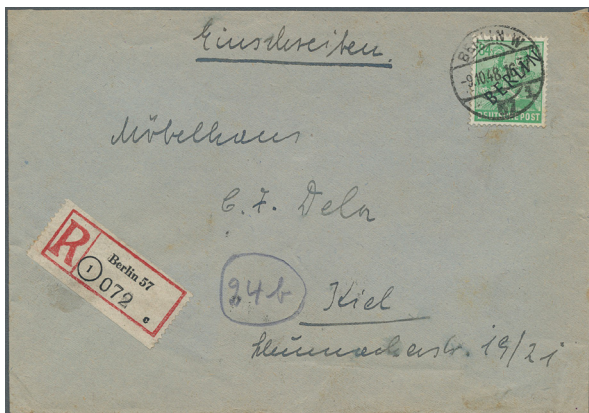 Einschreiben.
BERLIN W
-9.10.48.
BERLIN
57
DEUTSCHE POST
Möbelhaus
C. F. Dela
R
Berlin 57
1
072
c
24b
Kiel
19/21